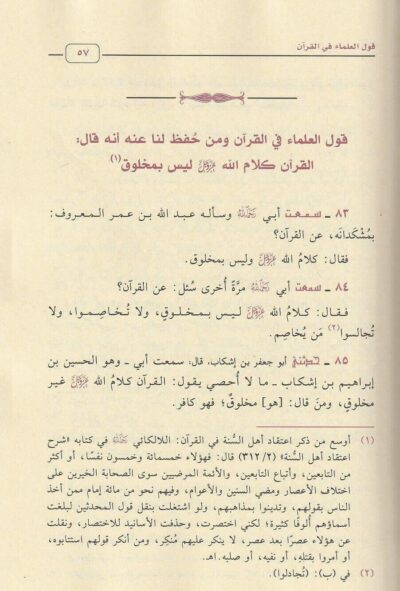 قول العلماء في القرآن
٥٧
قول العلماء في القرآن ومن حُفظ لنا عنه أنه قال:
القرآن كلام الله عز وجل ليس بمخلوق(١)
٨٣ ـ سمعت أبي رحمه الله وسأله عبد الله بن عمر المعروف:
بمُشْكَدانَه، عن القرآن؟
فقال: كلامُ الله عز وجل وليس بمخلوق.
٨٤ ـ سمعت أبي رحمه الله مرَّةً أُخرى سُئل: عن القرآن؟
فـقـال: كـلامُ الله عز وجل لـيـس بـمـخـلـوقٍ، ولا تُـخـاصِـمـوا، ولا
تُجالسوا(٢) مَن يُخاصِم.
٨٥ ـ حدثني أبو جعفر بن إشكاب، قال: سمعت أبي ـ وهو الحسين بن
إبراهيم بن إشكاب ـ ما لا أُحصي يقول: القرآن كلامُ الله عز وجل غير
مخلوقٍ، ومَن قال: [هو] مخلوقٌ؛ فهو كافر.
(١) أوسع من ذكر اعتقاد أهل السُّنة في القرآن: اللالكائي رحمه الله في كتابه «شرح
اعتقاد أهل السُّنة» (٣١٢/٢) قال: فهؤلاء خمسمائة وخمسون نفسًا، أو أكثر
من التابعين، وأتباع التابعين، والأئمة المرضيين سوى الصحابة الخيرين على
اختلاف الأعصار ومضي السنين والأعوام، وفيهم نحو من مائة إمام ممن أخذ
الناس بقولهم، وتدينوا بمذاهبهم، ولو اشتغلت بنقل قول المحدثين لبلغت
أسماؤهم أُلوفًا كثيرة؛ لكني اختصرت، وحذفت الأسانيد للاختصار، ونقلت
عن هؤلاء عصرًا بعد عصر، لا ينكر عليهم مُنكِر، ومن أنكر قولهم استتابوه،
أو أمروا بقتلِه، أو نفيه، أو صلبه.اهـ.
(٢) في (ب): (تُجادلوا).